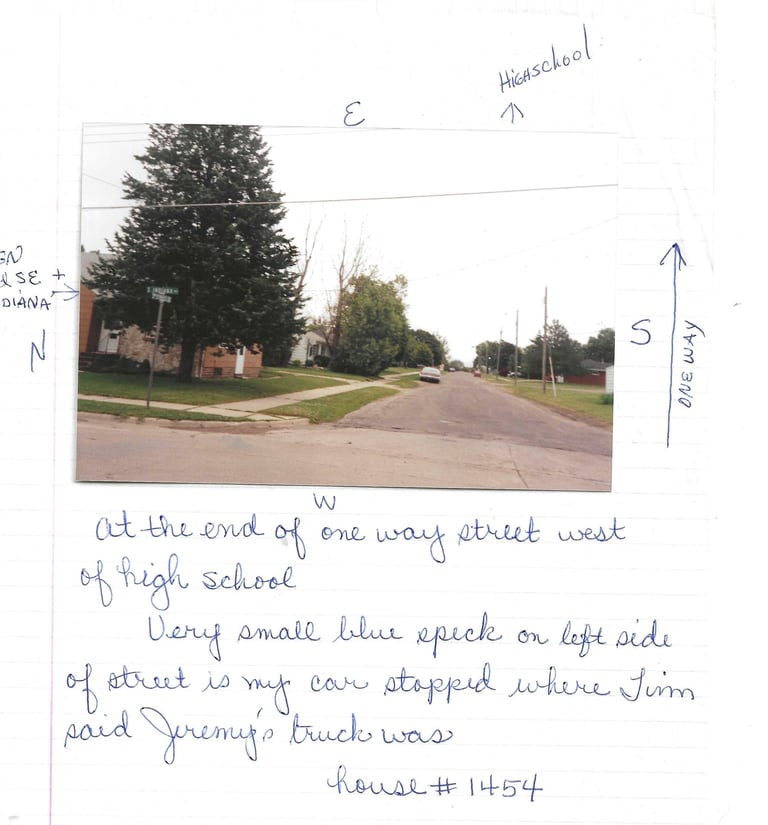 Highschool
E
GN
SE +
DIANA
N
S. INDIANA
S
ONE WAY
W
at the end of one way street west
of high school
Very small blue speck on left side
of street is my car stopped where Tim
said Jeremy's truck was
house # 1454